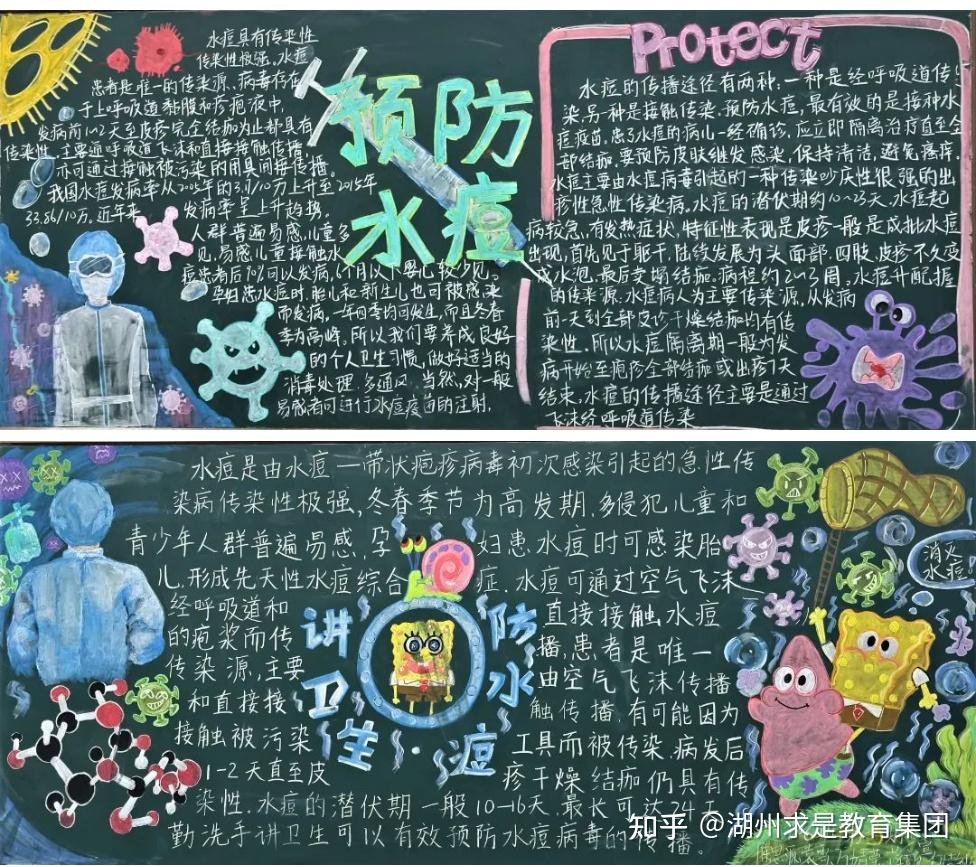 水痘具有传染性
传染性极强,水痘
患者是唯一的传染源,病毒存在
于上呼吸道黏膜和疱疹液中,
发病前1~2天至皮疹完全结痂为止都具有
传染性,主要通呼吸道飞沫和直接接触传播,
亦可通过接触被污染的用具间接传播.
我国水痘发病率从2005年的3.17/10万上升至2015年
33.56/10万.近年来 发病率呈上升趋势.
人群普遍易感,儿童多
见,易感儿童接触水
痘患者后90%可以发病,6个月以下婴儿较少见,
孕妇患水痘时,胎儿和新生儿也可被感染
而发病,一年四季均可发生,而且冬春
季为高峰,所以我们要养成良好
的个人卫生习惯,做好适当的
消毒处理,多通风,当然,对一般
易感者可进行水痘疫苗的注射.
预防
水痘
Protect
水痘的传播途径有两种:一种是经呼吸道传
染,另一种是接触传染.预防水痘,最有效的是接种水
痘疫苗,患了水痘的病儿一经确诊,应立即隔离治疗直至全
部结痂,要预防皮肤继发感染,保持清洁,避免瘙痒.
水痘主要由水痘病毒引起的一种传染 性很强的出
疹性急性传染病,水痘的潜伏期约10~23天,水痘起
病较急,有发热症状,特征性表现是皮疹一般是成批水痘
出现,首先见于躯干,陆续发展为头面部,四肢,皮疹不久变
成水泡,最后变塌结痂,病程约2~3周,水痘
的传染源,水痘病人为主要传染源,从发病
前一天到全部皮疹干燥结痂均有传
染性,所以水痘隔离期一般为发
病开始至疱疹全部结痂或出疹7天
结束,水痘的传播途径主要是通过
飞沫经呼吸道传染
水痘是由水痘—带状疱疹病毒初次感染引起的急性传
染病传染性极强,冬春季节为高发期,多侵犯儿童和
青少年人群普遍易感,孕 妇患水痘时可感染胎
儿,形成先天性水痘综合 症,水痘可通过空气飞沫
经呼吸道和 直接接触,水痘
的疱浆而传 播,患者是唯一
传染源,主要 由空气飞沫传播
和直接接 触传播,有可能因为
接触被污染 工具而被传染,病发后
1-2天直至皮 疹干燥结痂仍具有传
染性.水痘的潜伏期一般10-16天,最长可达24天
勤洗手讲卫生可以有效预防水痘病毒的传播。
讲卫生·防水痘
消灭
水痘!
知乎 @湖州求是教育集团